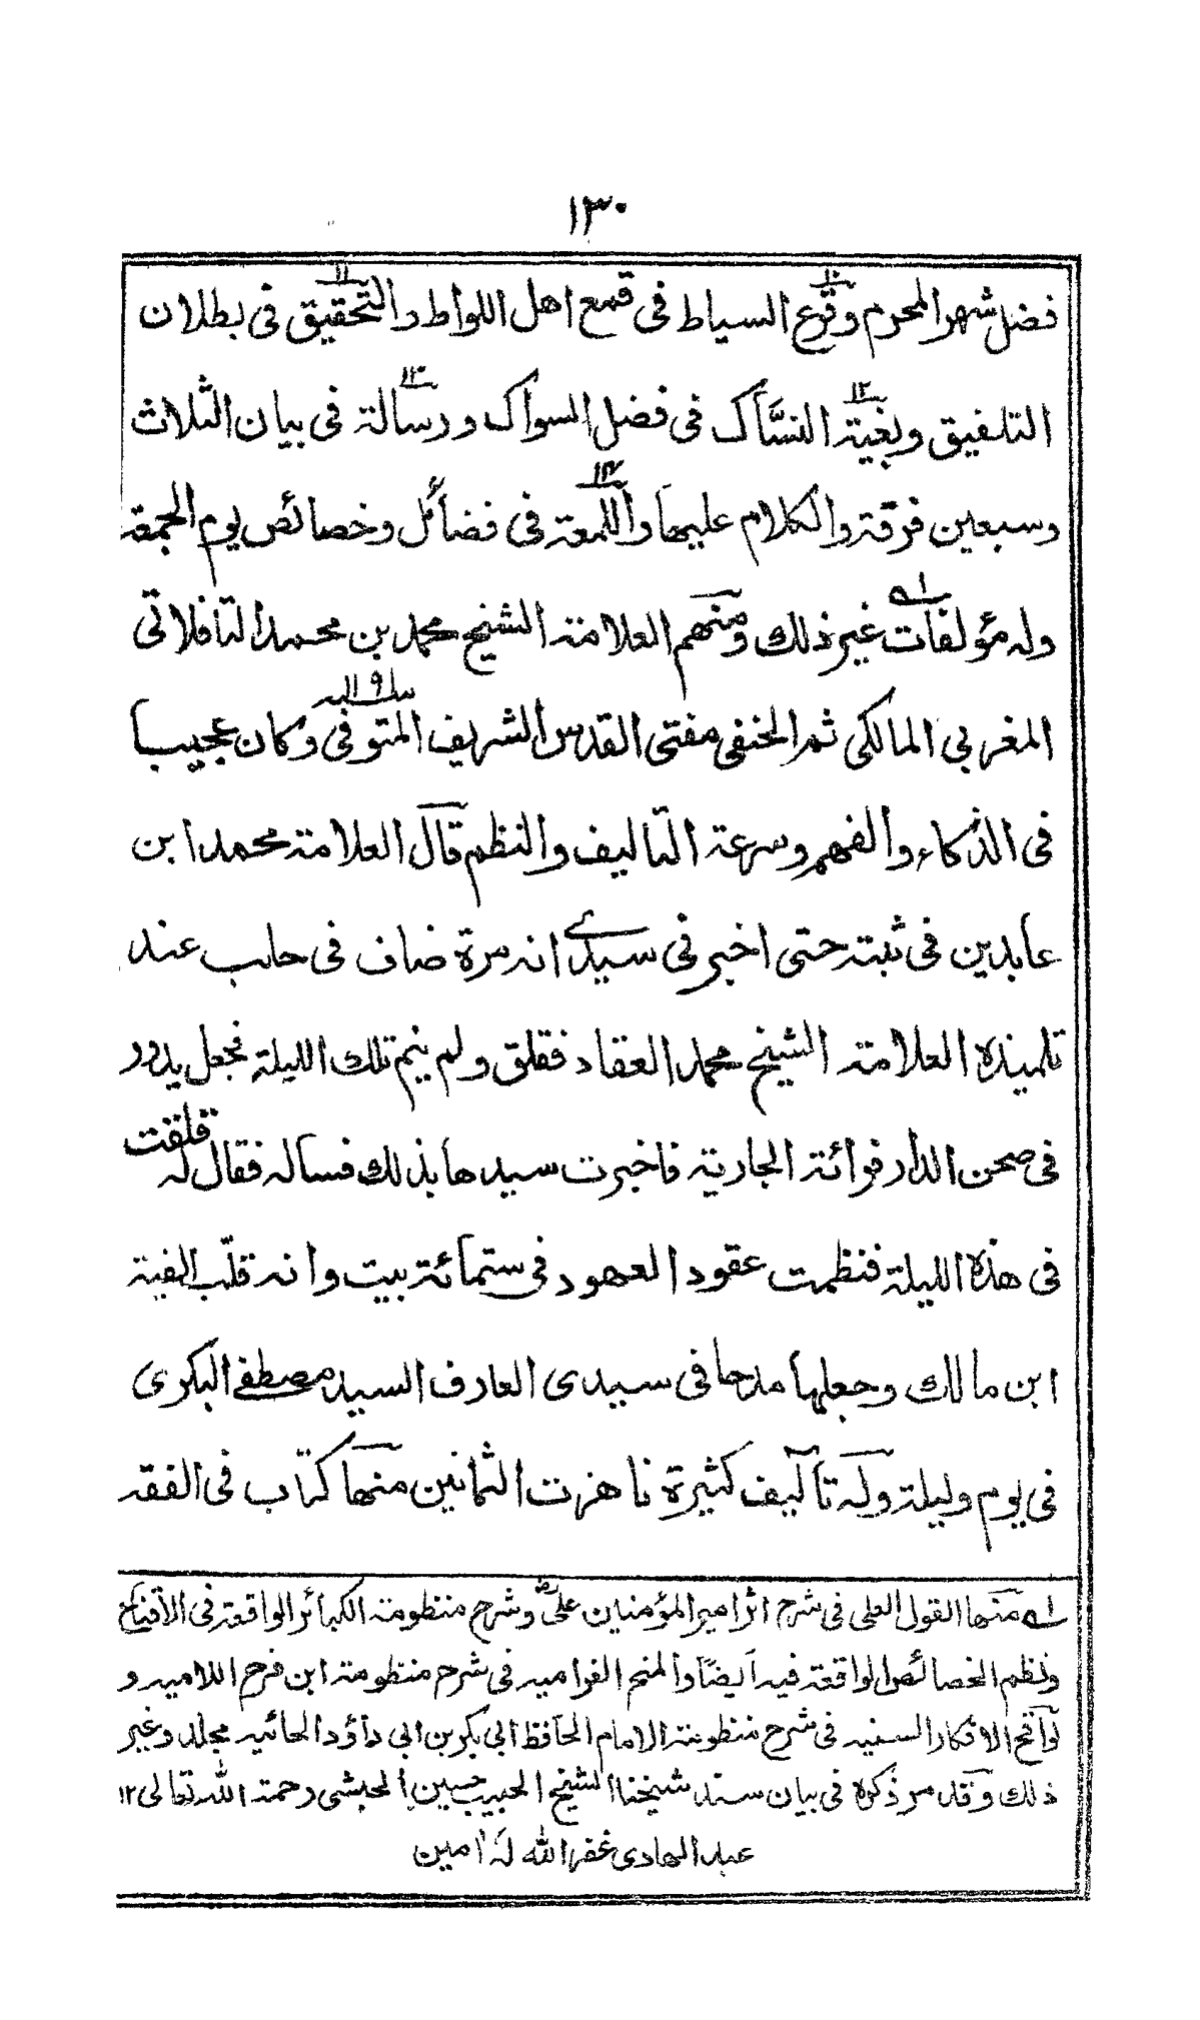 ١٣٠
فضل شهر المحرم وقرع السياط فى قمع اهل اللواط والتحقيق فى بطلان
التلفيق وبغية النسَّاك فى فضل السواك ورسالة فى بيان الثلاث
وسبعين فرقة والكلام عليها واللمعة فى فضائل وخصائص يوم الجمعة
وله مؤلفات غير ذلك ومنهم العلامة الشيخ محمد بن محمد التافلاتى
المغربى المالكى ثم الحنفى مفتى القدس الشريف المتوفى وكان عجيبا
فى الذكاء والفهم وسرعة التاليف والنظم قال العلامة محمد ابن
عابدين فى ثبته حتى اخبر فى سيدى انه مرة ضاف فى حلب عند
تلميذه العلامة الشيخ محمد العقاد فقلق ولم ينم تلك الليلة فجعل يدور
فى صحن الدار فرائة الجارية فاخبرت سيدها بذلك فساله فقال له قلقت
فى هذه الليلة فنظمت عقود العهود فى ستمائة بيت وانه قلّب الفية
ابن مالك وجعلها مدحا فى سيدى العارف السيد مصطفے البكرى
فى يوم وليلة وله تآليف كثيرة ناهزت الثمانين منها كتاب فى الفقه
له منها القول العلى فى شرح اثر امير المؤمنين علىؓ وشرح منظومة الكبائر الواقعة فى الاقناع
ونظم الخصائص الواقعة فيه ايضًا والمنح الغراميه فى شرح منظومة ابن فرح اللاميه و
لواقح الافكار السنيه فى شرح منظومة الامام الحافظ ابى بكر بن ابى داؤد الحائيه مجلد وغير
ذلك وقد مر ذكره فى بيان سند شيخنا الشيخ الحبيب حسين الحبشى رحمة الله تعالى ١٢
عبد الهادى غفر الله له اٰمين